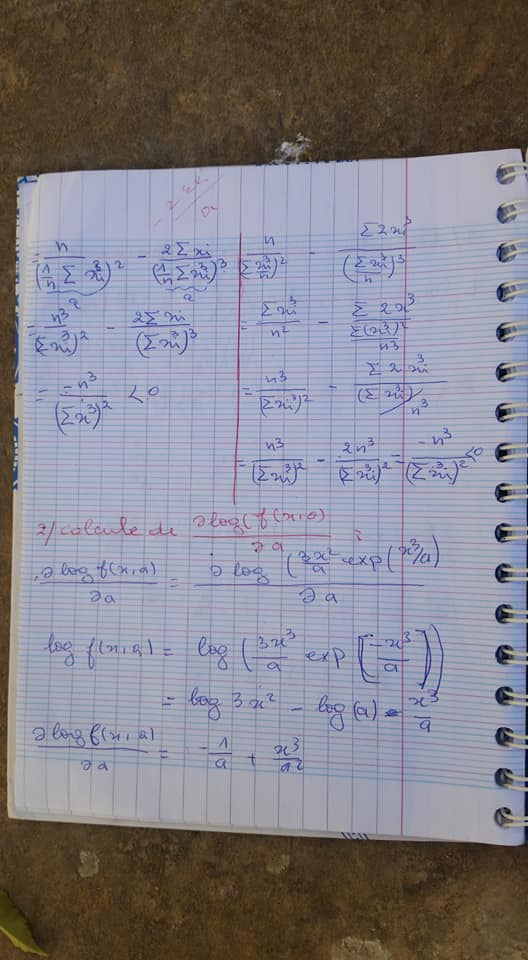 = n/(1/n Σ xi³)² - 2Σ xi/(1/n Σ xi³)³
a a
= n³/(Σ xi³)² - 2Σ xi/(Σ xi³)³
= -n³/(Σ xi³)² < 0
n/(Σ xi³/n)² - Σ 2x³/(Σ xi³/n)³
= Σ xi³/n² - Σ 2x³/Σ(xi³)²/n³
= n³/(Σ xi³)² - Σ 2 xi³/(Σ xi³)/n³
= n³/(Σ xi³)² - 2n³/(Σ xi³)² = -n³/(Σ xi³)² < 0
2/ calcule de ∂log(f(x,a)/∂a :
∂ log f(x,a)/∂a = ∂ log (3x²/a exp(x³/a)/∂a
log f(x,a) = log (3x³/a exp[-x³/a])
= log 3x² - log(a) - x³/a
∂ log f(x,a)/∂a = -1/a + x³/a²